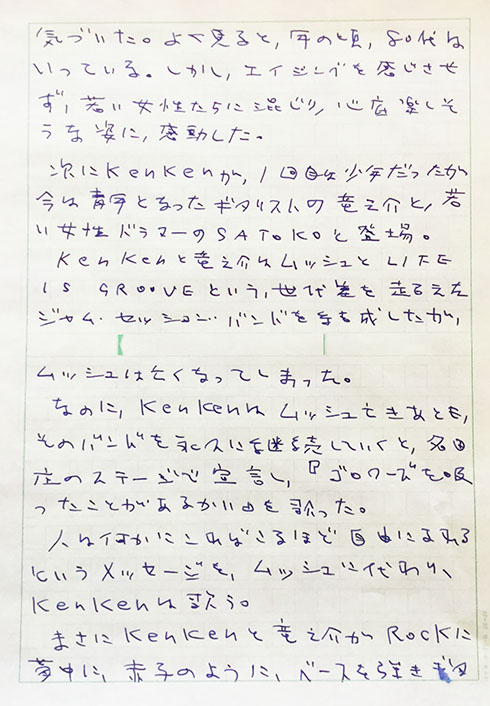 気づいた。よく見ると、年の頃、80代は
いっている。しかし、エイジングを感じさせ
ず、若い女性たちに混じり、心底楽しそ
うな姿に、感動した。
次にKenKenが、1回目は少年だったが
今は青年となったギタリストの竜之介と、若
い女性ドラマーのSATOKOと登場。
KenKenと竜之介はムッシュとLIFE
IS GROOVEという、世代差を超えた
ジャム・セッション・バンドを結成したが、
ムッシュは亡くなってしまった。
なのに、KenKenは ムッシュ亡きあとも、
そのバンドを永久に継続していくと、名田
庄のステージで宣言し、『ゴロワーズを吸
ったことがあるかい』を歌った。
人は何かにこればこるほど 自由になれる
というメッセージを、ムッシュに代わり、
KenKenは歌う。
まさにKenKenと竜之介が Rockに
夢中に、赤子のように、ベースを弾きギタ